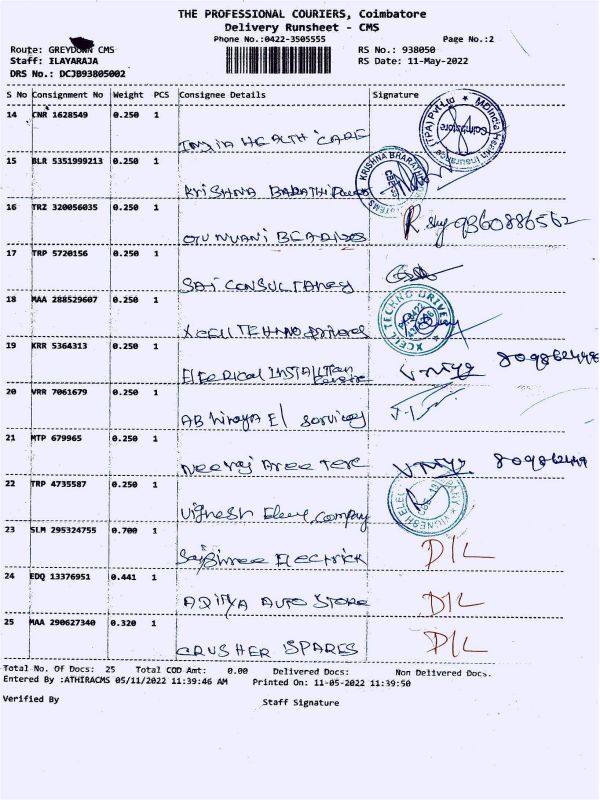 THE PROFESSIONAL COURIERS, Coimbatore
Delivery Runsheet - CMS
Phone No.:0422-3505555 Page No.:2
Route: GREYDOWN CMS RS No.: 938050
Staff: ILAYARAJA RS Date: 11-May-2022
DRS No.: DCJB93805002
S No Consignment No Weight PCS Consignee Details Signature
14 CNR 1628549 0.250 1
INDIA HEALTH CARE
15 BLR 5351999213 0.250 1
KRISHNA BARATHI
16 TRZ 320056035 0.250 1
9360886562
17 TRP 5720156 0.250 1
SAI CONSULTANCY
18 MAA 288529607 0.250 1
XCELL TEHNO DRIVES
19 KRR 5364313 0.250 1
20 VRR 7061679 0.250 1
AB El services
21 MTP 679965 0.250 1
Neeraj
22 TRP 4735587 0.250 1
Vignesh Company
23 SLM 295324755 0.700 1
Saishree Electrick D/L
24 EDQ 13376951 0.441 1
ADITYA AUTO STORE D/L
25 MAA 290627340 0.320 1
CRUSHER SPARES D/L
Total No. Of Docs: 25 Total COD Amt: 0.00 Delivered Docs: Non Delivered Docs.
Entered By :ATHIRACMS 05/11/2022 11:39:46 AM Printed On: 11-05-2022 11:39:50
Verified By Staff Signature